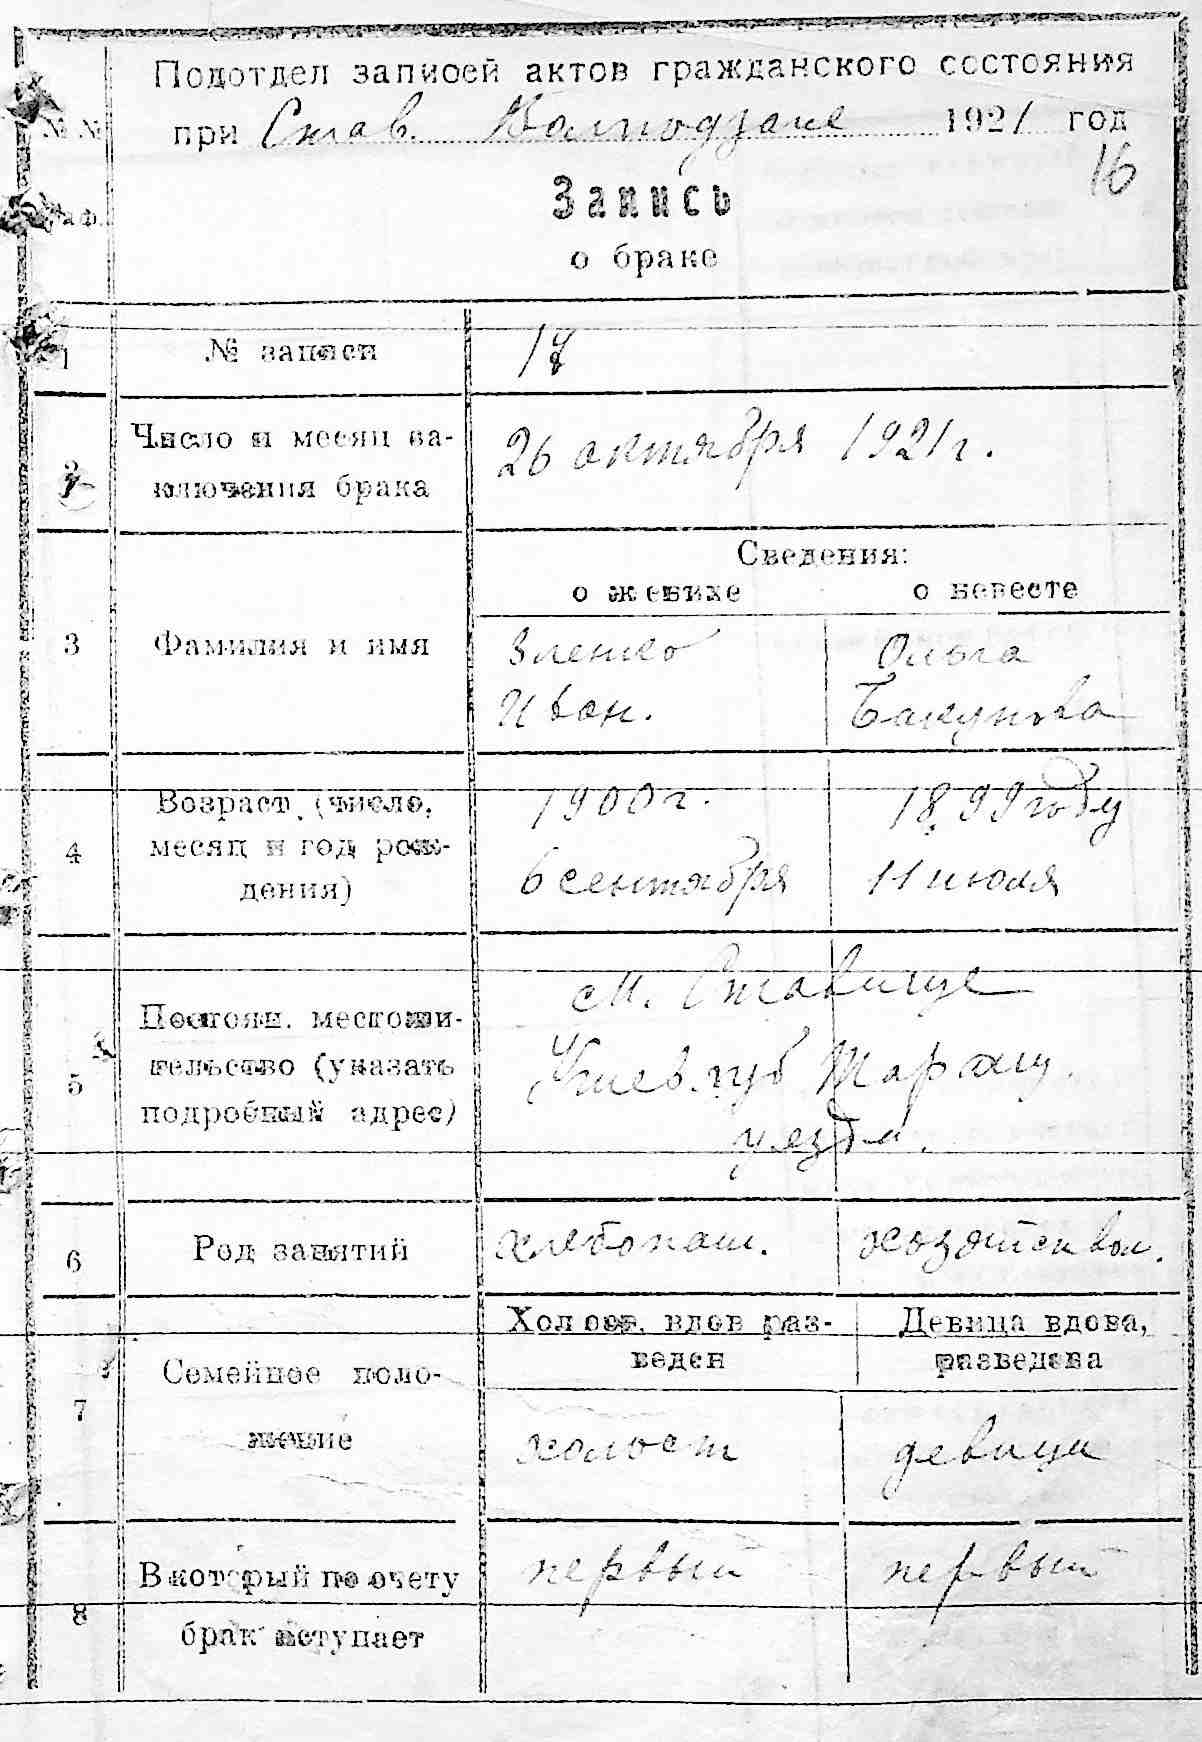 Подотдел записей актов гражданского состояния
при Став. 1921 год
№ №
аф.
16
Запись
о браке
1 № записи
2 Число и месяц за-
ключения брака
26 октября 1921 г.
Сведения:
о женихе о невесте
3 Фамилия и имя
Зленко Ольга
Иван. Бакунова
4 Возраст (число,
месяц и год рож-
дения)
1900 г. 1899 году
6 сентября 11 июля
5 Постоян. местожи-
тельство (указать
подробный адрес)
см. Ставище
Киев. губ Таращ.
уезда.
6 Род занятий
хлебопаш. хозяйствен.
Холост, вдов раз-
веден
Девица вдова,
разведена
7 Семейное поло-
жение
холост девица
8 В который по счету
брак вступает
первый первый